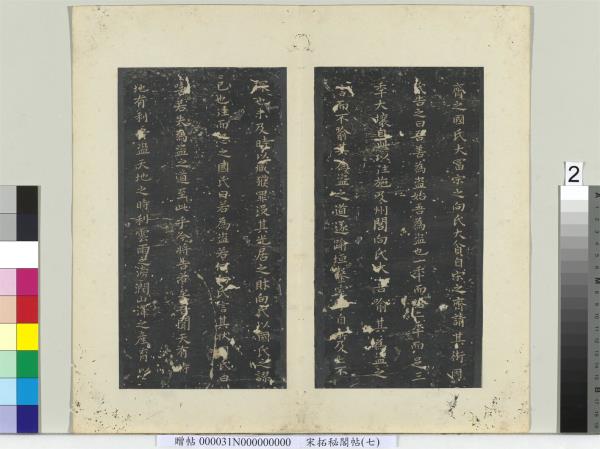 齊之國氏大富宋之向氏大貧自宋之齊請其術國
氏告之曰吾善為盜始吾為盜也一年而給二年而足三
年大壤自此以往施及州閭向氏大喜喻其為盜之
言而不喻其為盜之道遂踰垣鑿室手目所及亡不
探也未及時以贓獲罪沒其先居之財向氏以國氏之謬
己也往而怨之國氏曰若為盜若何向氏言其狀國氏曰
嘻若失為盜之道至此乎今將告若矣吾聞天有時
地有利吾盜天地之時利雲雨之滂潤山澤之產育以
2
贈帖 000031N000000000 宋拓秘閣帖(七)